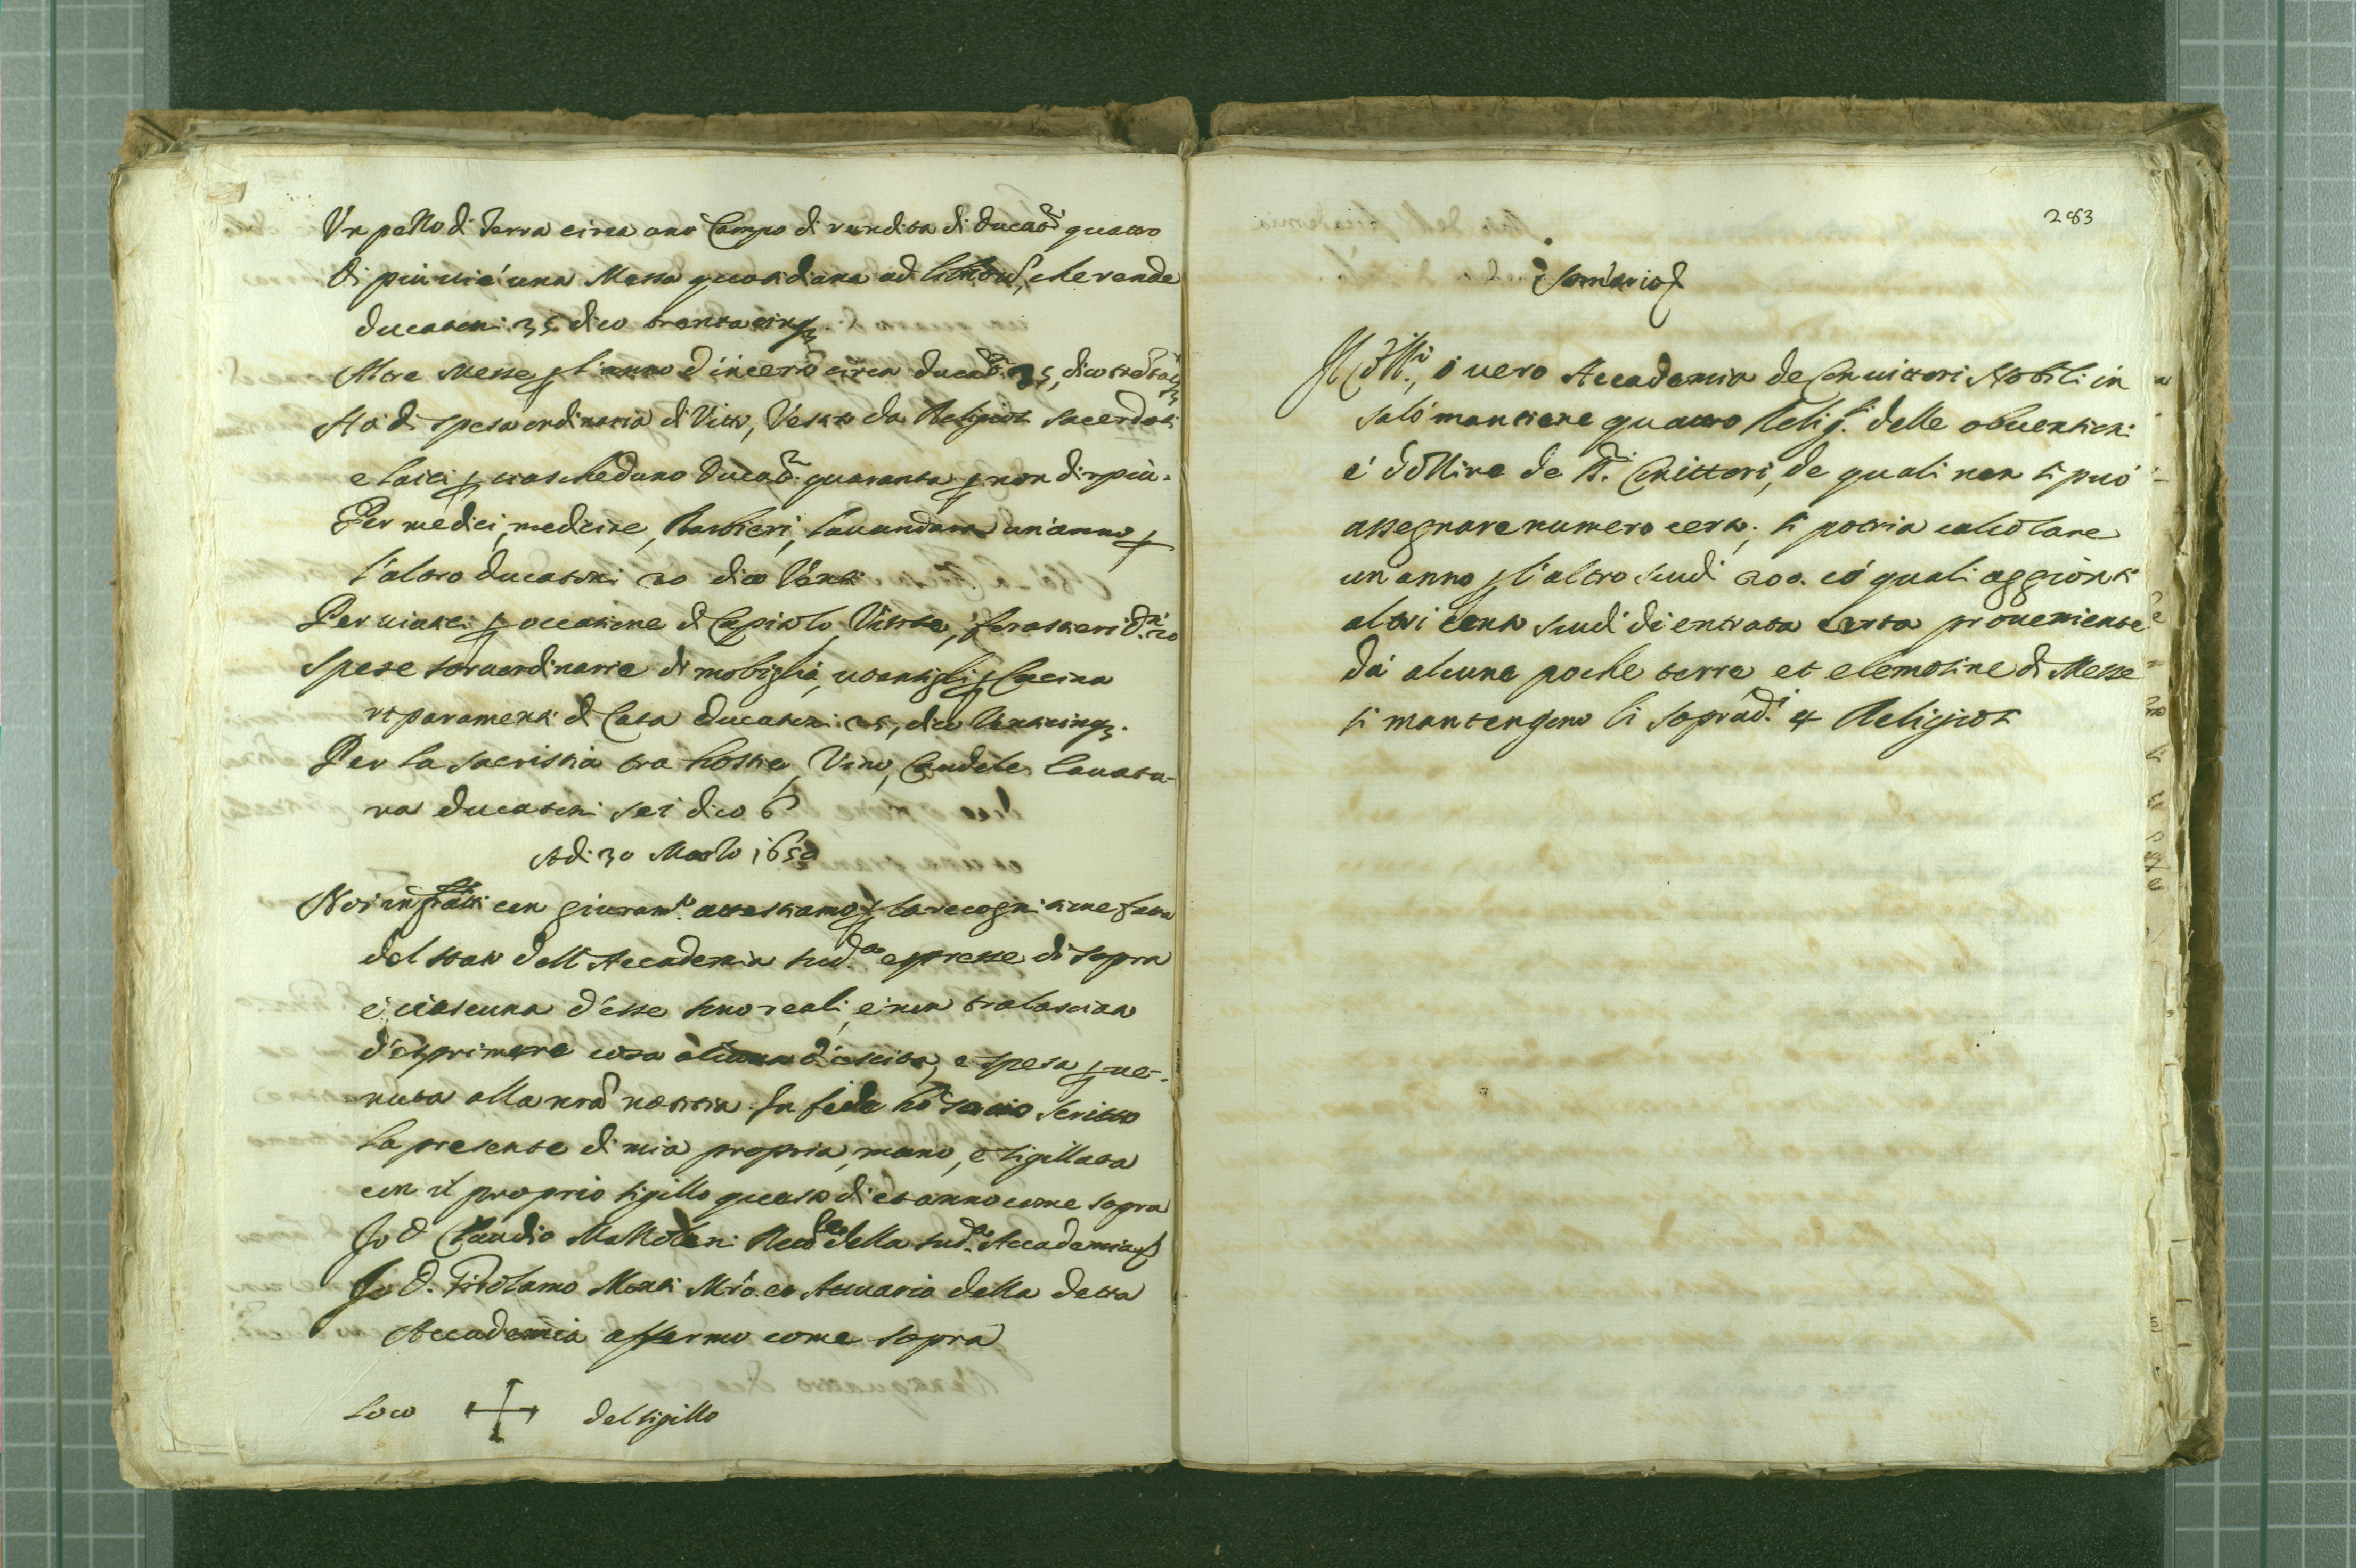 Un pezzo di Terra circa uno Campo di rendita di Ducat.ni quattro
Di più vi è una Messa quotidiana ad che rende
Ducatoni 35 dico trentacinq.
Altre Messe p l'anno d'incerto circa Ducat.ni 35, dico
Ha di spesa ordinaria di Vitto, Vestito da Religiosi sacerdoti
e laici p ciascheduno Ducat.ni quaranta p non dir più.
Per medici, medicine, Barbieri, lauandara un'anno p
l'altro ducatoni 20 dico Venti
Per viatici p occasione di Capitolo, Visite, forastieri D.ni 20
Spese straordinarie di mobiglia, utensigli p Cucina
riparamenti di Casa Ducatoni 25, dico Venticinq.
Per la sacristia tra hostie, Vino, Candele, lauatu-
ra ducatoni sei dico 6
Adi 30 Marzo 1650
Noi infratti con giuram.to attestiamo p la recognitione fatta
del stato dell'Accademia sud.a espresse di sopra
e ciascuna d'esse sono reali, e non tralasciato
d'esprimere cosa alcuna d'uscita, e spesa p ue-
nuta alla nrã notitia. In fede hò scritto
la presente di mia propria mano, e sigillata
con il proprio sigillo questo dì et anno come sopra
Io D. Claudio Mazzoleni Rett.re della sud.a Accademia
Io D. Girolamo Monti Mrõ. et Attuario della detta
Accademia affermo come sopra
Loco + del sigillo
283
Somario
Il Coll.o, ò uero Accademia de Conuittori Nobili in
Salò mantiene quattro Relig.si delle obuentioni
e dozzine de d.i Conuittori, de quali non si può
assegnare numero certo; si potria calcolare
un'anno p l'altro scudi 200. có quali aggionti
altri cento scudi di entrata certa proueniente
dà alcune poche terre et elemosine di Messe
si mantengono li soprad.i 4 Religiosi